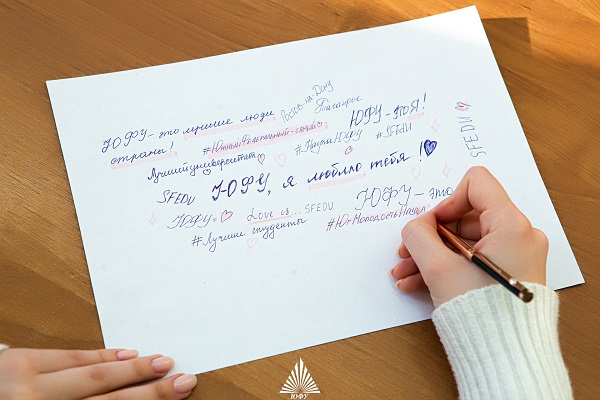 ЮФУ - это лучшие люди
страны!
Ростов-на-Дону
Таганрог
ЮФУ - это Я!
#SFEDU
SFEDU
#НаукаЮФУ
Лучший университет
SFEDU
Ю-ФУ, я люблю тебя!
ЮФУ=
Love is... SFEDU
ЮФУ - это
#Лучшие студенты
#ЮгМолодостьНаука
ЮФУ